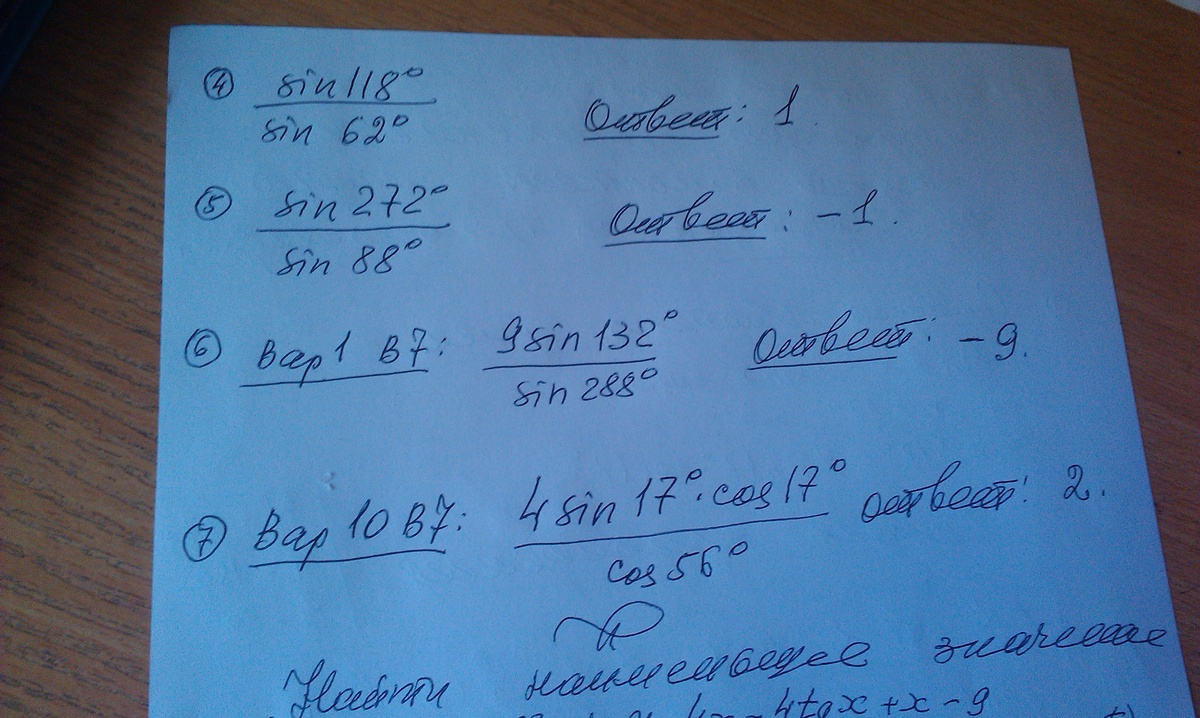 ④ sin 118° / sin 62° Ответ: 1.
⑤ sin 272° / sin 88° Ответ: -1.
⑥ Вар 1 В7: 9 sin 132° / sin 288° Ответ: -9.
⑦ Вар 10 В7: 4 sin 17° · cos 17° / cos 56° Ответ: 2.
Найти наименьшее значение
4x - 4tgx + x - 9